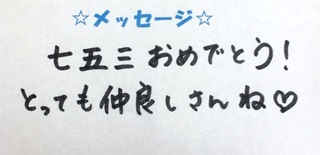 ☆メッセージ☆
七五三 おめでとう!
とっても仲良しさんね♡